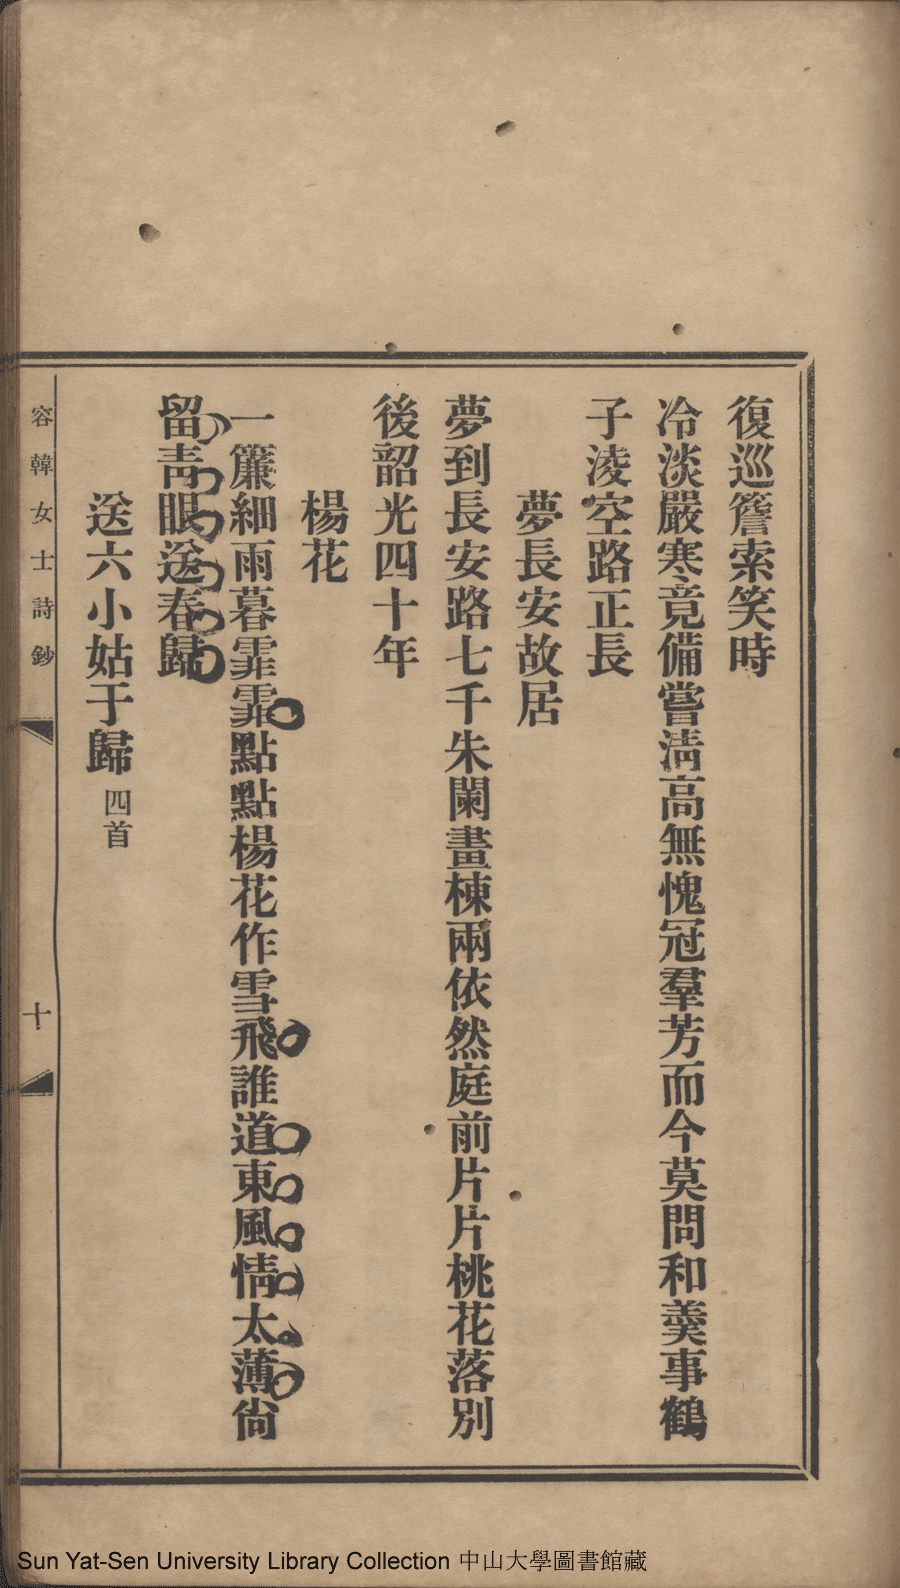 復巡簷索笑時
冷淡嚴寒竟備嘗淸高無愧冠羣芳而今莫問和羹事鶴
子淩空路正長
夢長安故居
夢到長安路七千朱闌畫棟兩依然庭前片片桃花落別
後韶光四十年
楊花
一簾細雨暮霏霏點點楊花作雪飛誰道東風情太薄尙
留靑眼送春歸
送六小姑于歸 四首
容韓女士詩鈔 十
Sun Yat-Sen University Library Collection 中山大學圖書館藏